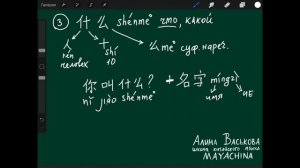 Галерея
3 什么 shénme что, какой
亻 十 shí 么 me суф. нареч.
rén 10
человек
你叫什么? + 名字 míngzi
nǐ jiào shénme имя
АЛИНА ВАСЬКОВА
ШКОЛА КИТАЙСКОГО ЯЗЫКА
MAYACHINA